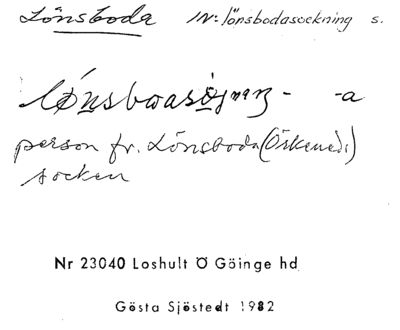 Lönsboda IN: lönsbodasockning s.
-a
person fr. Lönsboda (Örkeneds)
socken
Nr 23040 Loshult Ö Göinge hd
Gösta Sjöstedt 1982